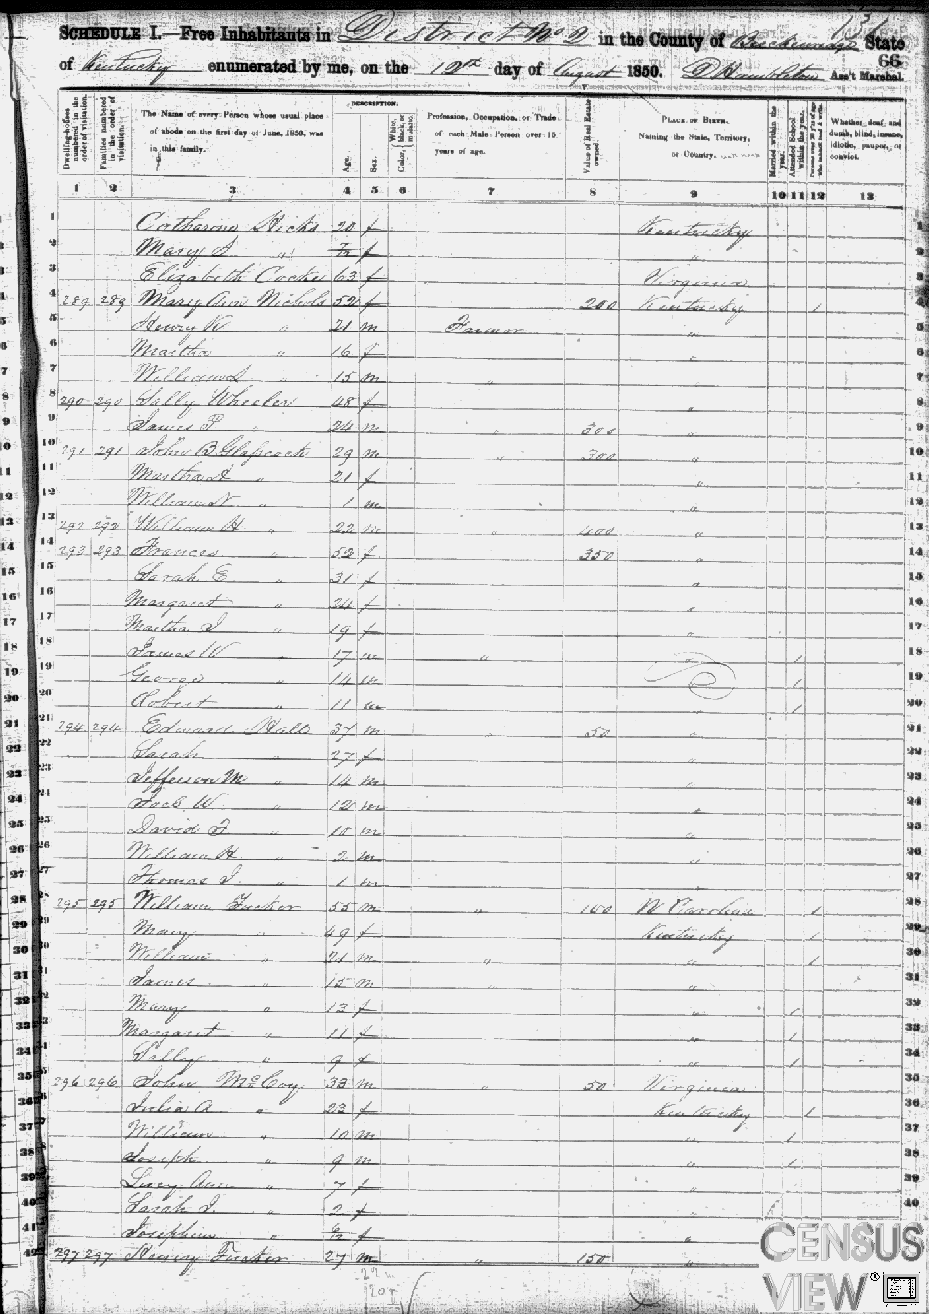 131
SCHEDULE I.—Free Inhabitants in District No 2 in the County of Breckenridge State
66
of Kentucky enumerated by me, on the 12th day of August 1850. Ass't Marshal.
DESCRIPTION.
Dwelling-houses numbered in the order of visitation.
Families numbered in the order of visitation.
The Name of every Person whose usual place of abode on the first day of June, 1850, was in this family.
Age.
Sex.
Color, White, black, or mulatto.
Profession, Occupation, or Trade of each Male Person over 15 years of age.
Value of Real Estate owned.
PLACE OF BIRTH. Naming the State, Territory, or Country.
Married within the year.
Attended School within the year.
Whether deaf and dumb, blind, insane, idiotic, pauper, or convict.
1 2 3 4 5 6 7 8 9 10 11 12 13
1 Catharine Hicks 20 f Kentucky 1
2 Mary " f "
3 Elizabeth 63 f Virginia 3
4 289 289 Mary Ann Nichols 52 f 200 Kentucky 1 4
5 Henry K " 21 m Farmer " 5
6 Martha " 16 f " 6
7 William " 15 m " 7
8 290 290 Sally Wheeler 48 f " 8
9 James P " 24 m " " 9
10 291 291 John B. Glasscock 29 m " 300 " 10
11 Martha " 21 f " 11
12 William " 1 m " 12
13 292 292 William H " 22 m " 400 " 13
14 293 293 Frances " 52 f 350 " 14
15 Sarah E " 31 f " 15
16 Margaret " 24 f " 16
17 Martha " 19 f " 17
18 James W " 17 m " " 1 18
19 George " 14 m " 1 19
20 Robert " 11 m " 1 20
21 294 294 Edward Hall 37 m " 50 " 21
22 Sarah " 27 f 22
23 Jefferson M " 14 m 23
24 W " 12 m " 24
25 David " 10 m " 25
26 William H " 2 m " 26
27 Thomas " 1 m " 27
28 295 295 William Tucker 55 m " 100 N Carolina 1 28
29 Mary " 49 f Kentucky 1 29
30 William " 21 m " " 1 30
31 James " 15 m " " 31
32 Mary " 13 f " 1 32
33 Margaret " 11 f " 1 33
34 Sally " 9 f " 1 34
35 296 296 John McCoy 33 m " 50 Virginia 35
36 Julia A " 23 f Kentucky 1 36
37 William " 10 m " 1 37
38 Joseph " 9 m " 1 38
39 Lucy Ann " 7 f " 39
40 Sarah " 2 f " 40
41 Josephine " f " 41
42 297 297 Henry Tucker 27 m " 150 "
CENSUS
VIEW®